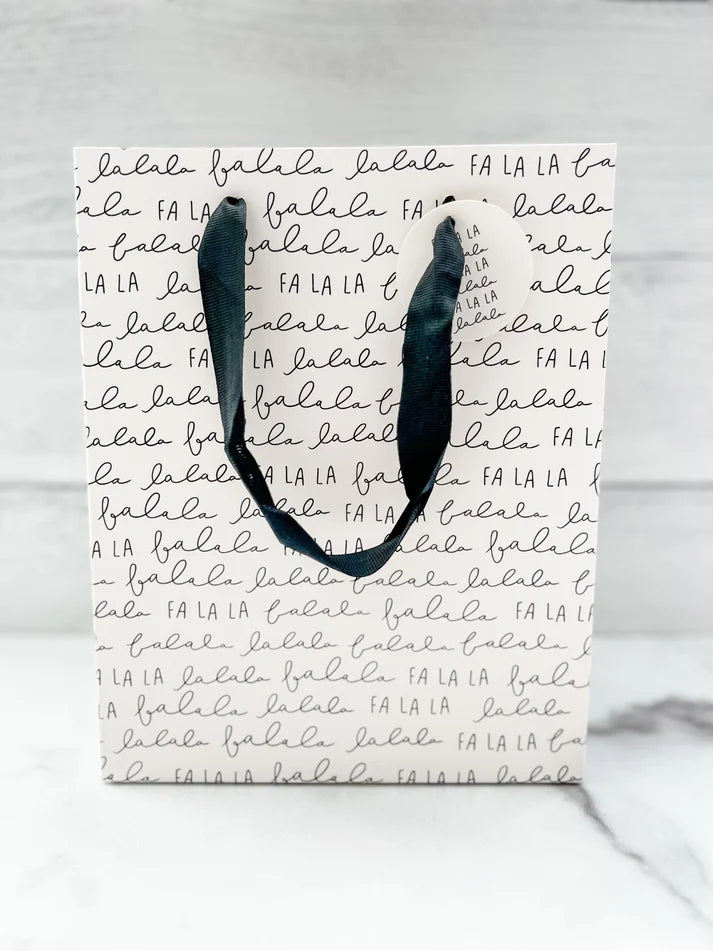 lalala falala lalala FA LA LA fa
ala FA LA falala FA lalala
falala la fala
LA LA la FA LA LA ala
la lalala falala lal lala f
lala FA LA lalala lala FA LA L
ala lalala falala f lalala
lalala fa lala lalala falala FA L
la lalala FA LA LA fal la FA LA LA
falala la ala FA LA A falala la
A LA falala FA LA LA falala lalala
a falala lalala falala lalala f
lala FA LA LA falala falala FA LA
a falala lalala falala falala
A LA LA lalala falala FA LA LA fala
LA falala lalala FA LA LA lalala
lalala falala lalala FA LA LA fa
ala FA LA LA falala FA LA LA lalala
LA
ala
LA
lala
LA LA
lalala